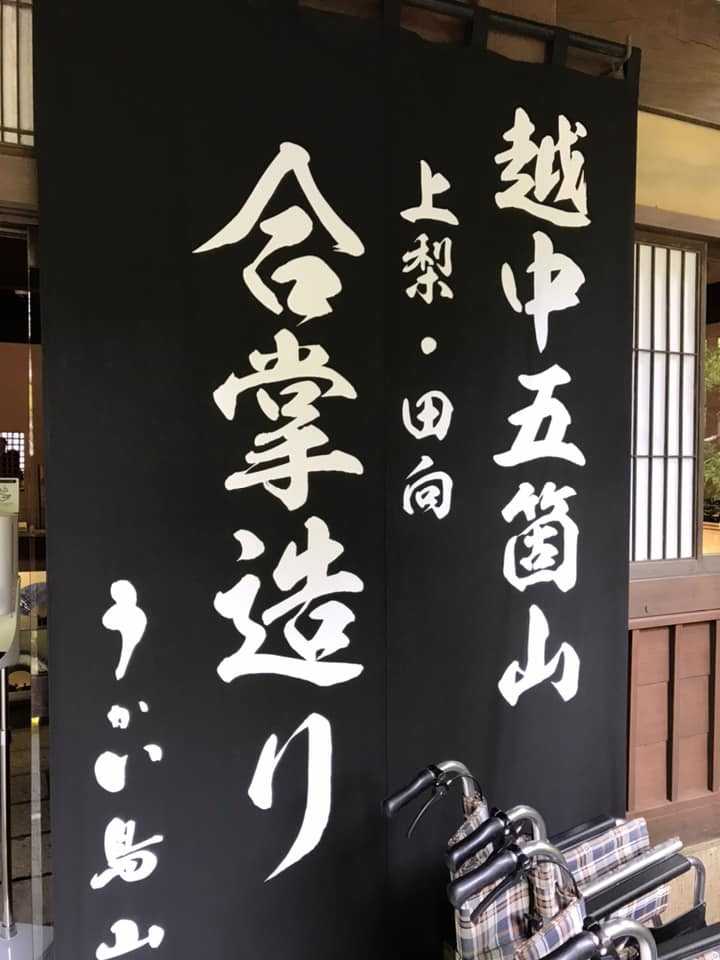 越中五箇山
上梨・田向
合掌造り
うかい鳥山